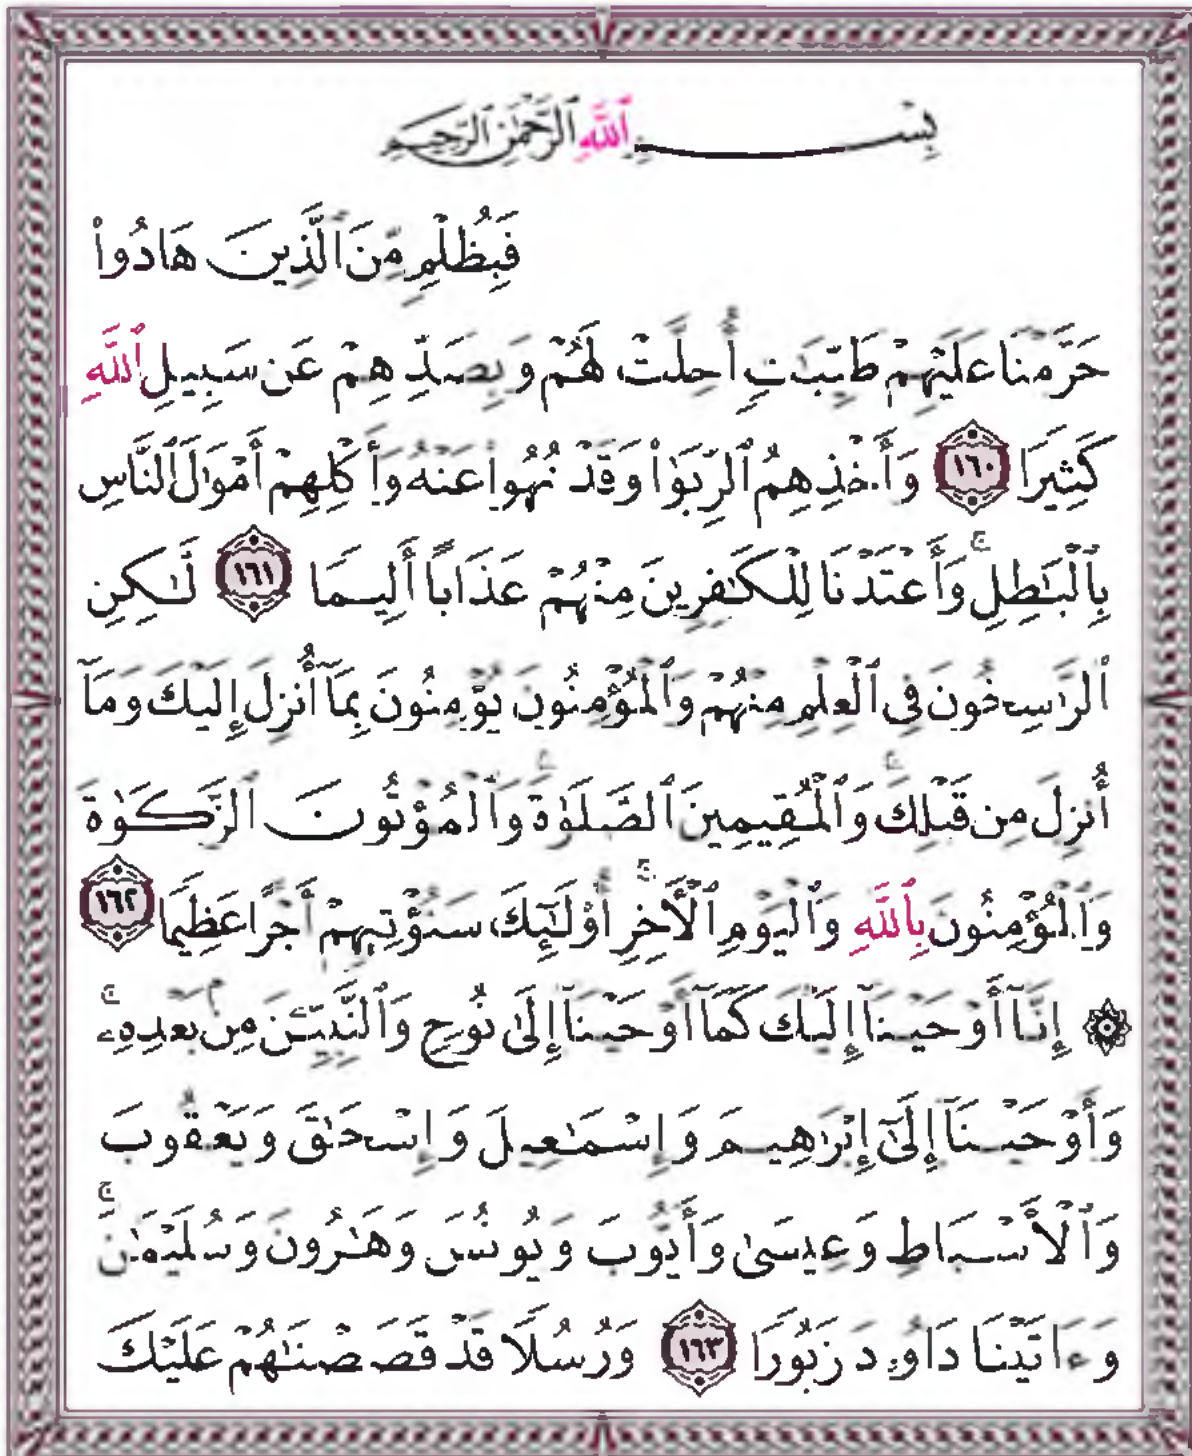 بِسْمِ ٱللَّهِ ٱلرَّحْمَٰنِ ٱلرَّحِيمِ
فَبِظُلْمٍ مِّنَ ٱلَّذِينَ هَادُوا۟
حَرَّمْنَا عَلَيْهِمْ طَيِّبَٰتٍ أُحِلَّتْ لَهُمْ وَبِصَدِّهِمْ عَن سَبِيلِ ٱللَّهِ
كَثِيرًا ١٦٠ وَأَخْذِهِمُ ٱلرِّبَوٰا۟ وَقَدْ نُهُوا۟ عَنْهُ وَأَكْلِهِمْ أَمْوَٰلَ ٱلنَّاسِ
بِٱلْبَٰطِلِ ۚ وَأَعْتَدْنَا لِلْكَٰفِرِينَ مِنْهُمْ عَذَابًا أَلِيمًا ١٦١ لَّٰكِنِ
ٱلرَّٰسِخُونَ فِى ٱلْعِلْمِ مِنْهُمْ وَٱلْمُؤْمِنُونَ يُؤْمِنُونَ بِمَآ أُنزِلَ إِلَيْكَ وَمَآ
أُنزِلَ مِن قَبْلِكَ ۚ وَٱلْمُقِيمِينَ ٱلصَّلَوٰةَ ۚ وَٱلْمُؤْتُونَ ٱلزَّكَوٰةَ
وَٱلْمُؤْمِنُونَ بِٱللَّهِ وَٱلْيَوْمِ ٱلْءَاخِرِ ۚ أُو۟لَٰٓئِكَ سَنُؤْتِيهِمْ أَجْرًا عَظِيمًا ١٦٢
۞ إِنَّآ أَوْحَيْنَآ إِلَيْكَ كَمَآ أَوْحَيْنَآ إِلَىٰ نُوحٍ وَٱلنَّبِيِّۦنَ مِنۢ بَعْدِهِۦ ۚ
وَأَوْحَيْنَآ إِلَىٰٓ إِبْرَٰهِيمَ وَإِسْمَٰعِيلَ وَإِسْحَٰقَ وَيَعْقُوبَ
وَٱلْأَسْبَاطِ وَعِيسَىٰ وَأَيُّوبَ وَيُونُسَ وَهَٰرُونَ وَسُلَيْمَٰنَ ۚ
وَءَاتَيْنَا دَاوُۥدَ زَبُورًا ١٦٣ وَرُسُلًا قَدْ قَصَصْنَٰهُمْ عَلَيْكَ